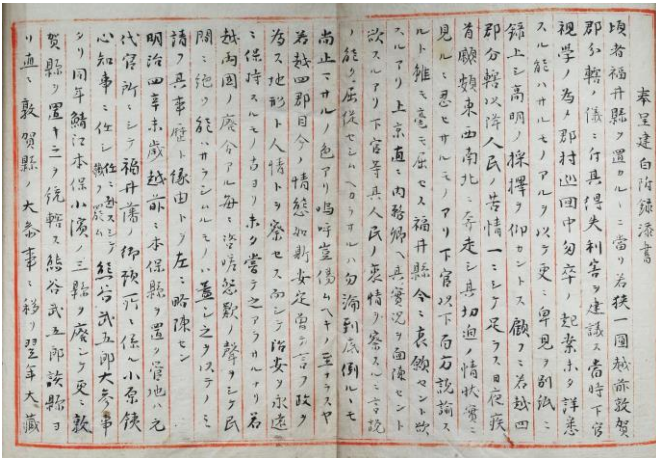 奉呈建白附録添書
頃者福井縣ヲ置カルヽニ當リ若狹一國越前敦賀
郡分轄ノ儀ニ付具得失利害ヲ建議ス當時下官
視學ノ為メ郡村巡回中匆卒ノ起案未タ詳悉
スル能ハサルモノアルヲ以テ更ニ卑見ヲ別紙ニ
録上シ高明ノ採擇ヲ仰カントス顧フニ若越四
郡分轄以降人民ノ苦情一ニシテ足ラス日夜疾
首顰頞東西南北ニ奔走シ具切迫ノ情状實ニ
見ルニ忍ヒサルモノアリ下官以下百方説諭ス
ルト雖モ毫モ屈セス福井縣令ニ哀願セント欲
スルアリ上京直ニ内務卿ヘ具實況ヲ面陳セント
欲スルアリ下官等具人民ノ衷情ヲ察スルニ言説
ノ能ク屈從セシムヘカラサルハ勿論到底倒ルヽモ
尚止マサルノ色アリ嗚呼豈傷ムヘキノ至ナラスヤ
若越四郡目今ノ情態如斯安定ノ言フ政ヲ
為ス地形ト人情トヲ察セス而シテ治安ヲ永遠
ニ保持スルモノ古ヨリ未タ嘗テ之アラサルナリ若
越両國ノ廃合アル毎ニ咨嗟怨歎ノ聲ヲシテ民
間ニ絶ツ能ハサラシムルモノハ蓋シ之ヲ以テノミ
請フ具事歴ト縁由トヲ左ニ略陳セン
明治四辛未歳越前ニ本保縣ヲ置ク管地ハ元
代官所ニシテ福井藩御預所ニ係ル小原鉄
心知事ニ任シ熊谷武五郎大参事
タリ同年鯖江本保小濱ノ三縣ヲ廢シテ更ニ敦
賀縣ヲ置キ之ヲ統轄ス熊谷武五郎該縣ヨ
リ直ニ敦賀縣ノ大参事ニ移リ翌年大藏